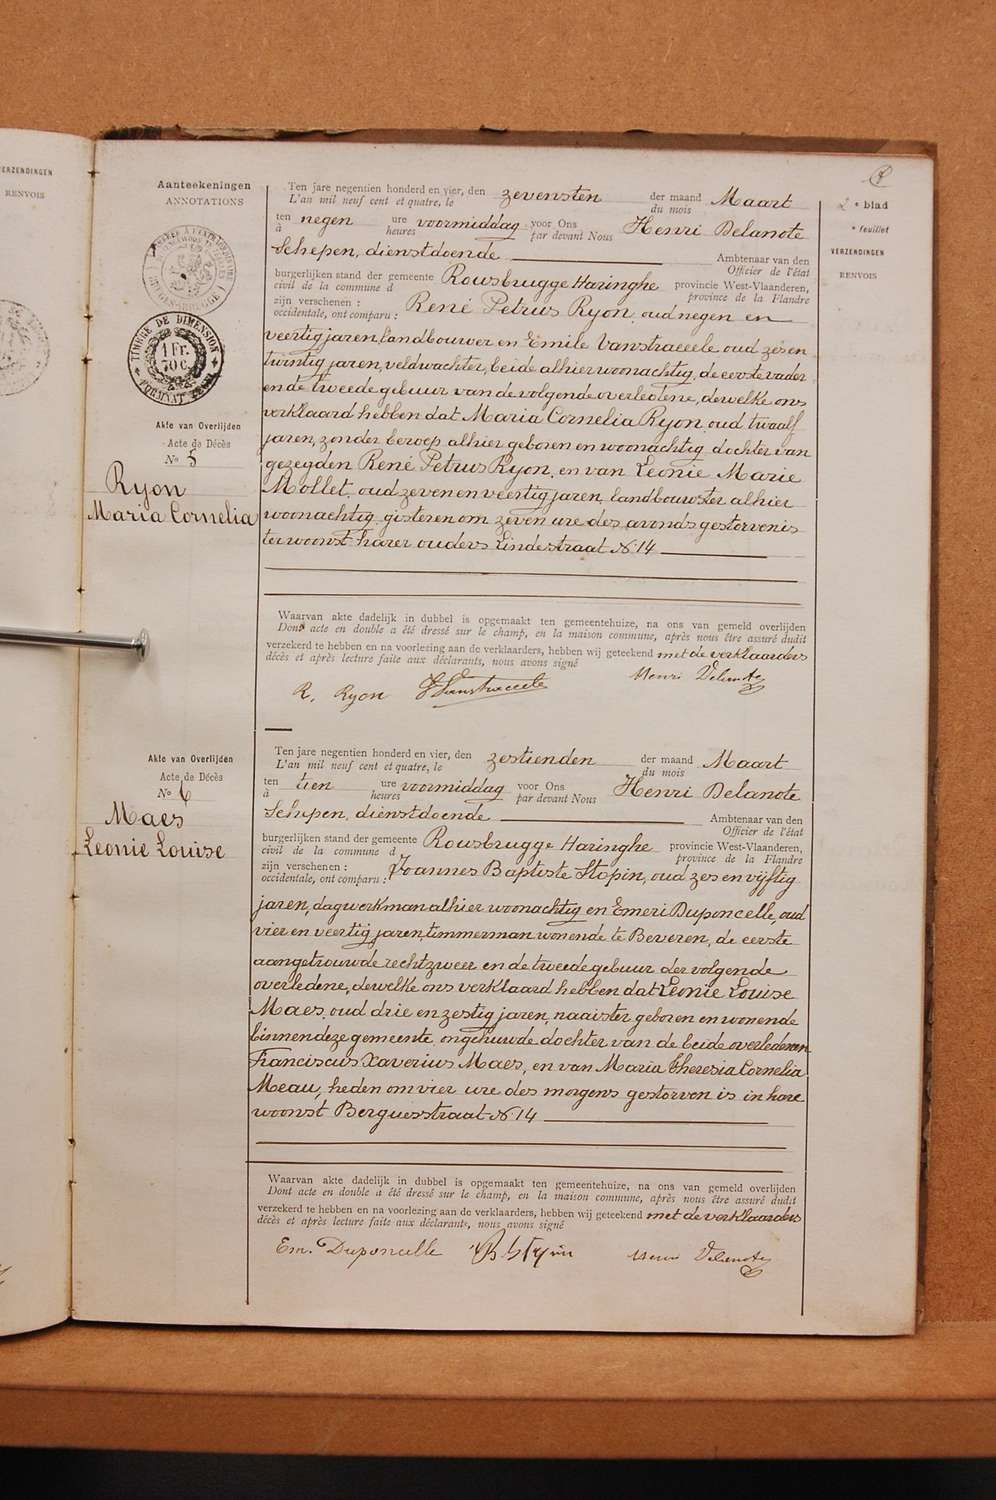 VERZENDINGEN
RENVOIS
Aanteekeningen
ANNOTATIONS
TIMBRE DE DIMENSION
1 Fr.
70 c.
Akte van Overlijden
Acte de Décès
No 5
Ryon
Maria Cornelia
Ten jare negentien honderd en vier, den zevensten der maand Maart
L'an mil neuf cent et quatre, le du mois
ten negen ure voormiddag voor Ons Henri Delanote
à heures par devant Nous
Schepen, dienstdoende Ambtenaar van den
Officier de l'état
burgerlijken stand der gemeente Rousbrugge Haringhe provincie West-Vlaanderen,
civil de la commune d province de la Flandre
zijn verschenen : René Petrus Ryon, oud negen en
occidentale, ont comparu :
veertig jaren, landbouwer en Emile Vanstraeele oud zes en
twintig jaren, veldwachter, beide alhier woonachtig, de eerste vader
en de tweede gebuur van de volgende overledene, dewelke ons
verklaard hebben dat Maria Cornelia Ryon, oud twaalf
jaren, zonder beroep alhier geboren en woonachtig dochter van
gezegden René Petrus Ryon, en van Leonie Marie
Mollet, oud zeven en veertig jaren, landbouwster alhier
woonachtig gisteren om zeven ure des avonds gestorven is
ter woonst harer ouders Lindestraat No 14
Waarvan akte dadelijk in dubbel is opgemaakt ten gemeentehuize, na ons van gemeld overlijden
Dont acte en double a été dressé sur le champ, en la maison commune, après nous être assuré dudit
verzekerd te hebben en na voorlezing aan de verklaarders, hebben wij geteekend met de verklaarders
décès et après lecture faite aux déclarants, nous avons signé
R. Ryon E Vanstraeele Henri Delanote
Akte van Overlijden
Acte de Décès
No 6
Maes
Leonie Louise
Ten jare negentien honderd en vier, den zestienden der maand Maart
L'an mil neuf cent et quatre, le du mois
ten tien ure voormiddag voor Ons Henri Delanote
à heures par devant Nous
Schepen, dienstdoende Ambtenaar van den
Officier de l'état
burgerlijken stand der gemeente Rousbrugge Haringhe provincie West-Vlaanderen,
civil de la commune d province de la Flandre
zijn verschenen : Joannes Baptiste Stopin, oud zes en vijftig
occidentale, ont comparu :
jaren, dagwerkman alhier woonachtig en Emeri Duponcelle, oud
vier en veertig jaren, timmerman wonende te Beveren, de eerste
aangetrouwde rechtzweer en de tweede gebuur der volgende
overledene, dewelke ons verklaard hebben dat Leonie Louise
Maes, oud drie en zestig jaren, naaister geboren en wonende
binnen deze gemeente, ongehuwde dochter van de beide overledenen
Franciscus Xaverius Maes, en van Maria Theresia Cornelia
Meau, heden om vier ure des morgens gestorven is in hare
woonst Berguesstraat No 14
Waarvan akte dadelijk in dubbel is opgemaakt ten gemeentehuize, na ons van gemeld overlijden
Dont acte en double a été dressé sur le champ, en la maison commune, après nous être assuré dudit
verzekerd te hebben en na voorlezing aan de verklaarders, hebben wij geteekend met de verklaarders
décès et après lecture faite aux déclarants, nous avons signé
Em. Duponcelle Henri Delanote
2e blad
e feuillet
VERZENDINGEN
RENVOIS